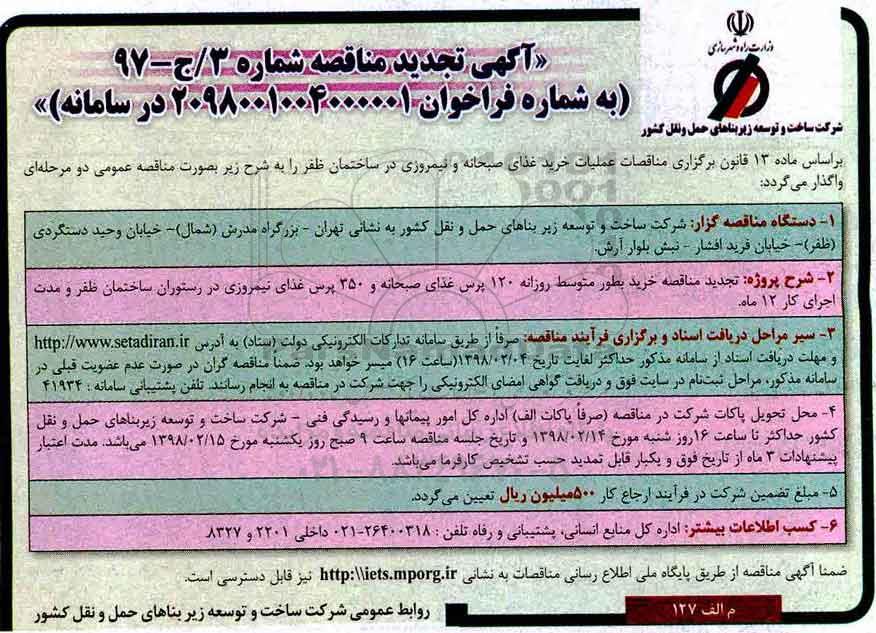 وزارت راه و شهرسازی
شرکت ساخت و توسعه زیربناهای حمل ونقل کشور
«آگهی تجدید مناقصه شماره ۳/ج-۹۷
(به شماره فراخوان ۲۰۹۸۰۰۱۰۰۴۰۰۰۰۰۱ در سامانه)»
براساس ماده ۱۳ قانون برگزاری مناقصات عملیات خرید غذای صبحانه و نیمروزی در ساختمان ظفر را به شرح زیر بصورت مناقصه عمومی دو مرحله‌ای
واگذار می‌گردد:
۱- دستگاه مناقصه گزار: شرکت ساخت و توسعه زیر بناهای حمل و نقل کشور به نشانی تهران - بزرگراه مدرش (شمال)- خیابان وحید دستگردی
(ظفر)- خیابان فرید افشار - نبش بلوار آرش.
۲- شرح پروژه: تجدید مناقصه خرید بطور متوسط روزانه ۱۲۰ پرس غذای صبحانه و ۳۵۰ پرس غذای نیمروزی در رستوران ساختمان ظفر و مدت
اجرای کار ۱۲ ماه.
۳- سیر مراحل دریافت اسناد و برگزاری فرآیند مناقصه: صرفاً از طریق سامانه تدارکات الکترونیکی دولت (ستاد) به آدرس http://www.setadiran.ir
و مهلت دریافت اسناد از سامانه مذکور حداکثر لغایت تاریخ ۱۳۹۸/۰۲/۰۴(ساعت ۱۶) میسر خواهد بود. ضمناً مناقصه گران در صورت عدم عضویت قبلی در
سامانه مذکور، مراحل ثبت‌نام در سایت فوق و دریافت گواهی امضای الکترونیکی را جهت شرکت در مناقصه به انجام رسانند. تلفن پشتیبانی سامانه : ۴۱۹۳۴
۴- محل تحویل پاکات شرکت در مناقصه (صرفاً پاکات الف) اداره کل امور پیمانها و رسیدگی فنی - شرکت ساخت و توسعه زیربناهای حمل و نقل
کشور حداکثر تا ساعت ۱۶روز شنبه مورخ ۱۳۹۸/۰۲/۱۴ و تاریخ جلسه مناقصه ساعت ۹ صبح روز یکشنبه مورخ ۱۳۹۸/۰۲/۱۵ می‌باشد. مدت اعتبار
پیشنهادات ۳ ماه از تاریخ فوق و یکبار قابل تمدید حسب تشخیص کارفرما می‌باشد.
۵- مبلغ تضمین شرکت در فرآیند ارجاع کار ۵۰۰میلیون ریال تعیین می‌گردد.
۶- کسب اطلاعات بیشتر: اداره کل منابع انسانی، پشتیبانی و رفاه تلفن : ۲۶۴۰۰۳۱۸-۰۲۱ داخلی ۲۲۰۱ و ۸۳۲۷
ضمنا آگهی مناقصه از طریق پایگاه ملی اطلاع رسانی مناقصات به نشانی http:\\iets.mporg.ir نیز قابل دسترسی است.
م الف ۱۲۷
روابط عمومی شرکت ساخت و توسعه زیر بناهای حمل و نقل کشور